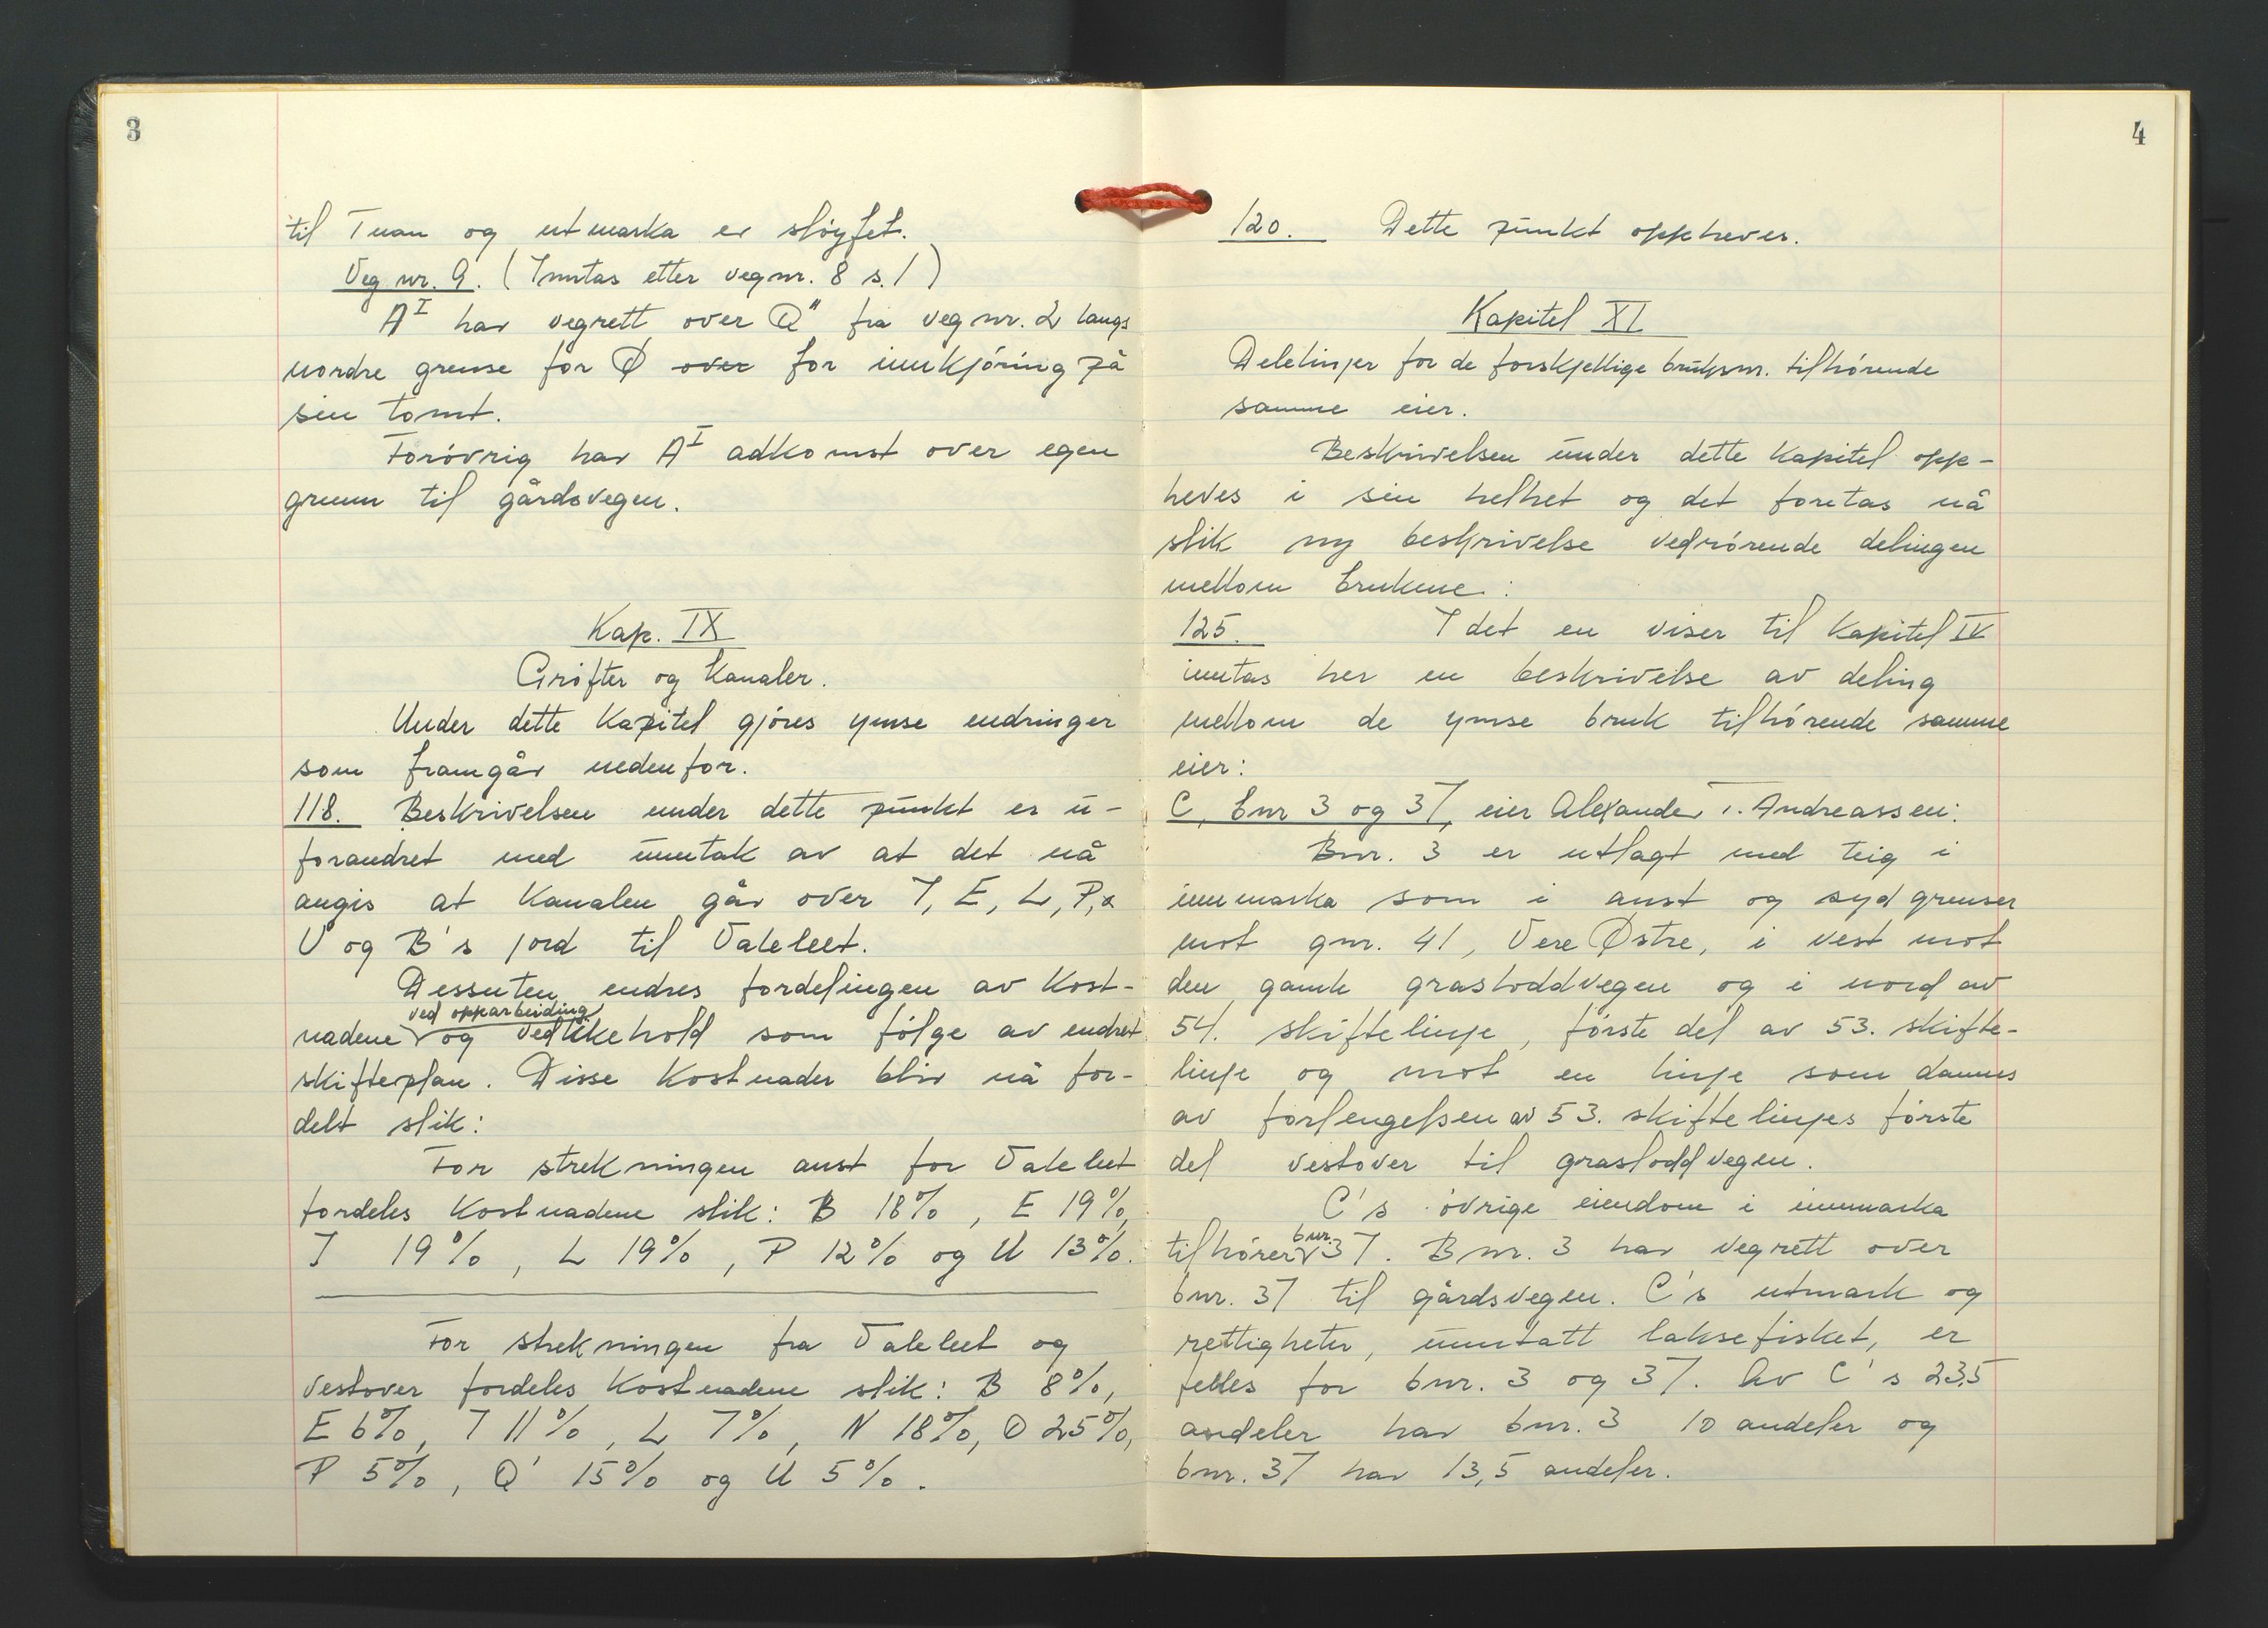 3
til Tuan og utmarka er sløyfet.
Veg nr. 9. (Inntas etter veg nr. 8 s. 1)
A^I har vegrett over Q" fra veg nr. 2 langs
nordre grense for Ø over for innkjøring på
sin tomt.
Forøvrig har A^I adkomst over egen
grunn til gårdsvegen.
Kap. IX
Grøfter og kanaler.
Under dette kapitel gjøres ymse endringer
som framgår nedenfor.
118. Beskrivelsen under dette punkt er u-
forandret med unntak av at det nå
angis at kanalen går over I, E, L, P,
U og B's jord til Valeleet.
Dessuten endres fordelingen av kost-
ved opparbeiding
nadene og vedlikehold som følge av endret
skifteplan. Disse kostnader blir nå for-
delt slik:
For strekningen aust for Valeleet
fordeles kostnadene slik: B 18%, E 19%,
I 19%, L 19%, P 12% og U 13%.
For strekningen fra Valeleet og
vestover fordeles kostnadene slik: B 8%,
E 6%, I 11%, L 7%, N 18%, O 25%,
P 5%, Q' 15% og U 5%.
4
120. Dette punkt oppheves.
Kapitel XI
Delelinjer for de forskjellige bruksnr. tilhørende
samme eier.
Beskrivelsen under dette kapitel opp-
heves i sin helhet og det foretas nå
slik ny beskrivelse vedrørende delingen
mellom brukene:
125. I det en viser til kapitel IV
inntas her en beskrivelse av deling
mellom de ymse bruk tilhørende samme
eier:
C, bnr 3 og 37, eier Alexander T. Andreassen:
Bnr. 3 er utlagt med teig i
innmarka som i aust og syd grenser
mot gnr. 41, Vere Østre, i vest mot
den gamle grasloddvegen og i nord av
54. skiftelinje, første del av 53. skifte-
linje og mot en linje som dannes
av forlengelsen av 53. skiftelinjes første
del vestover til grasloddvegen.
C's øvrige eiendom i innmarka
bnr.
tilhører 37. Bnr. 3 har vegrett over
bnr. 37 til gårdsvegen. C's utmark og
rettigheter, unntatt laksefisket, er
felles for bnr. 3 og 37. Av C's 23,5
andeler har bnr. 3 10 andeler og
bnr. 37 har 13,5 andeler.